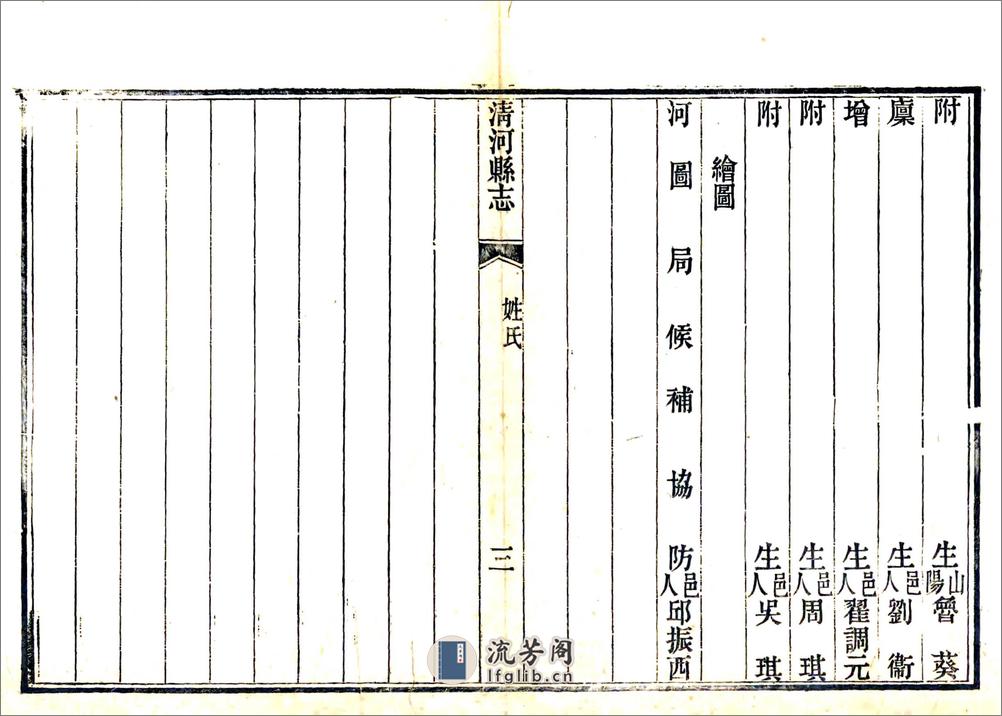 附生山陽魯葵
廩生邑人劉衞
增生邑人翟調元
附生邑人周琪
附生邑人吳琪
繪圖
河圖局候補協防邑人邱振西
清河縣志
姓氏
三
流芳阁
lfglib.cn